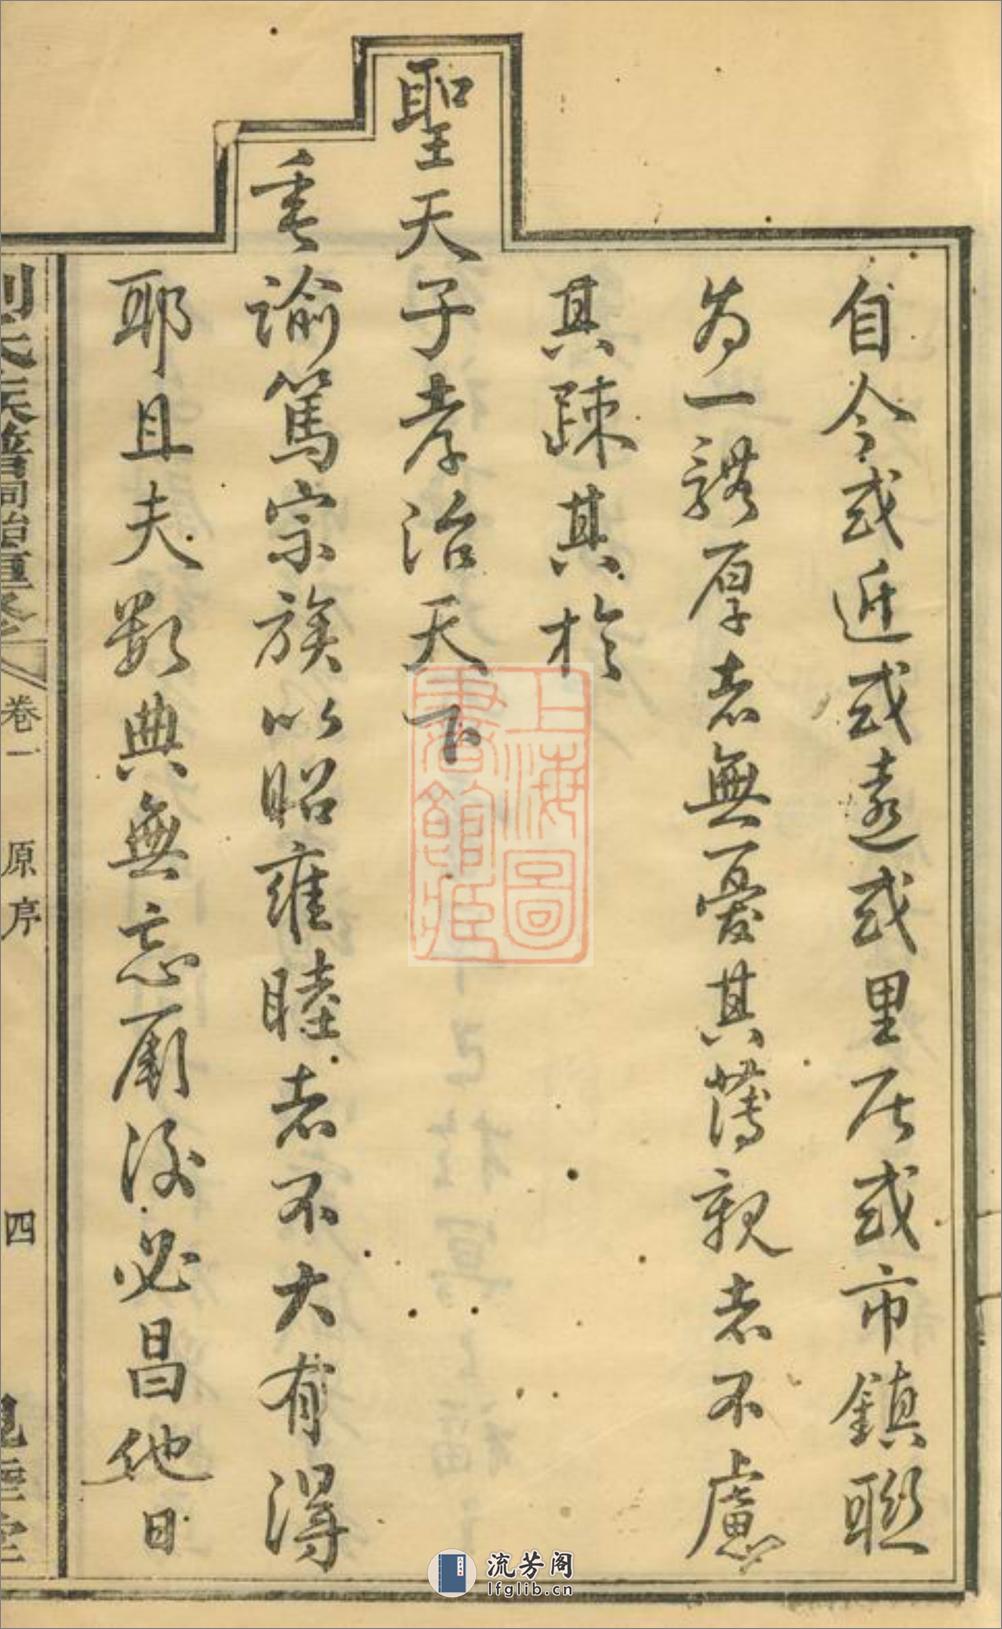 自今或近或遠或里居或市鎮聯
為一譜厚者無憂其薄親者不慮
其疎其於
聖天子孝治天下
重諭篤宗族以昭雍睦者不大有得
耶且夫數典無忘厥後必昌他日
劉氏族譜同治重修
卷一
原序
四
上海圖
書館藏
流芳阁
lfglib.cn